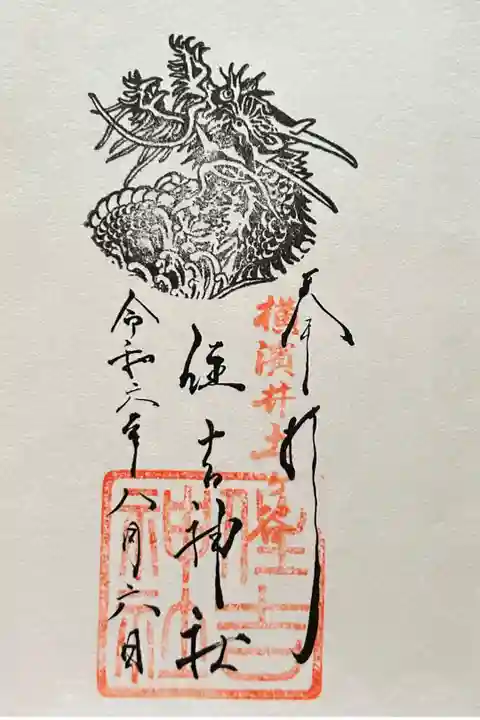 奉拝
横濱井土ヶ谷
住吉神社
令和六年八月六日
住吉神社